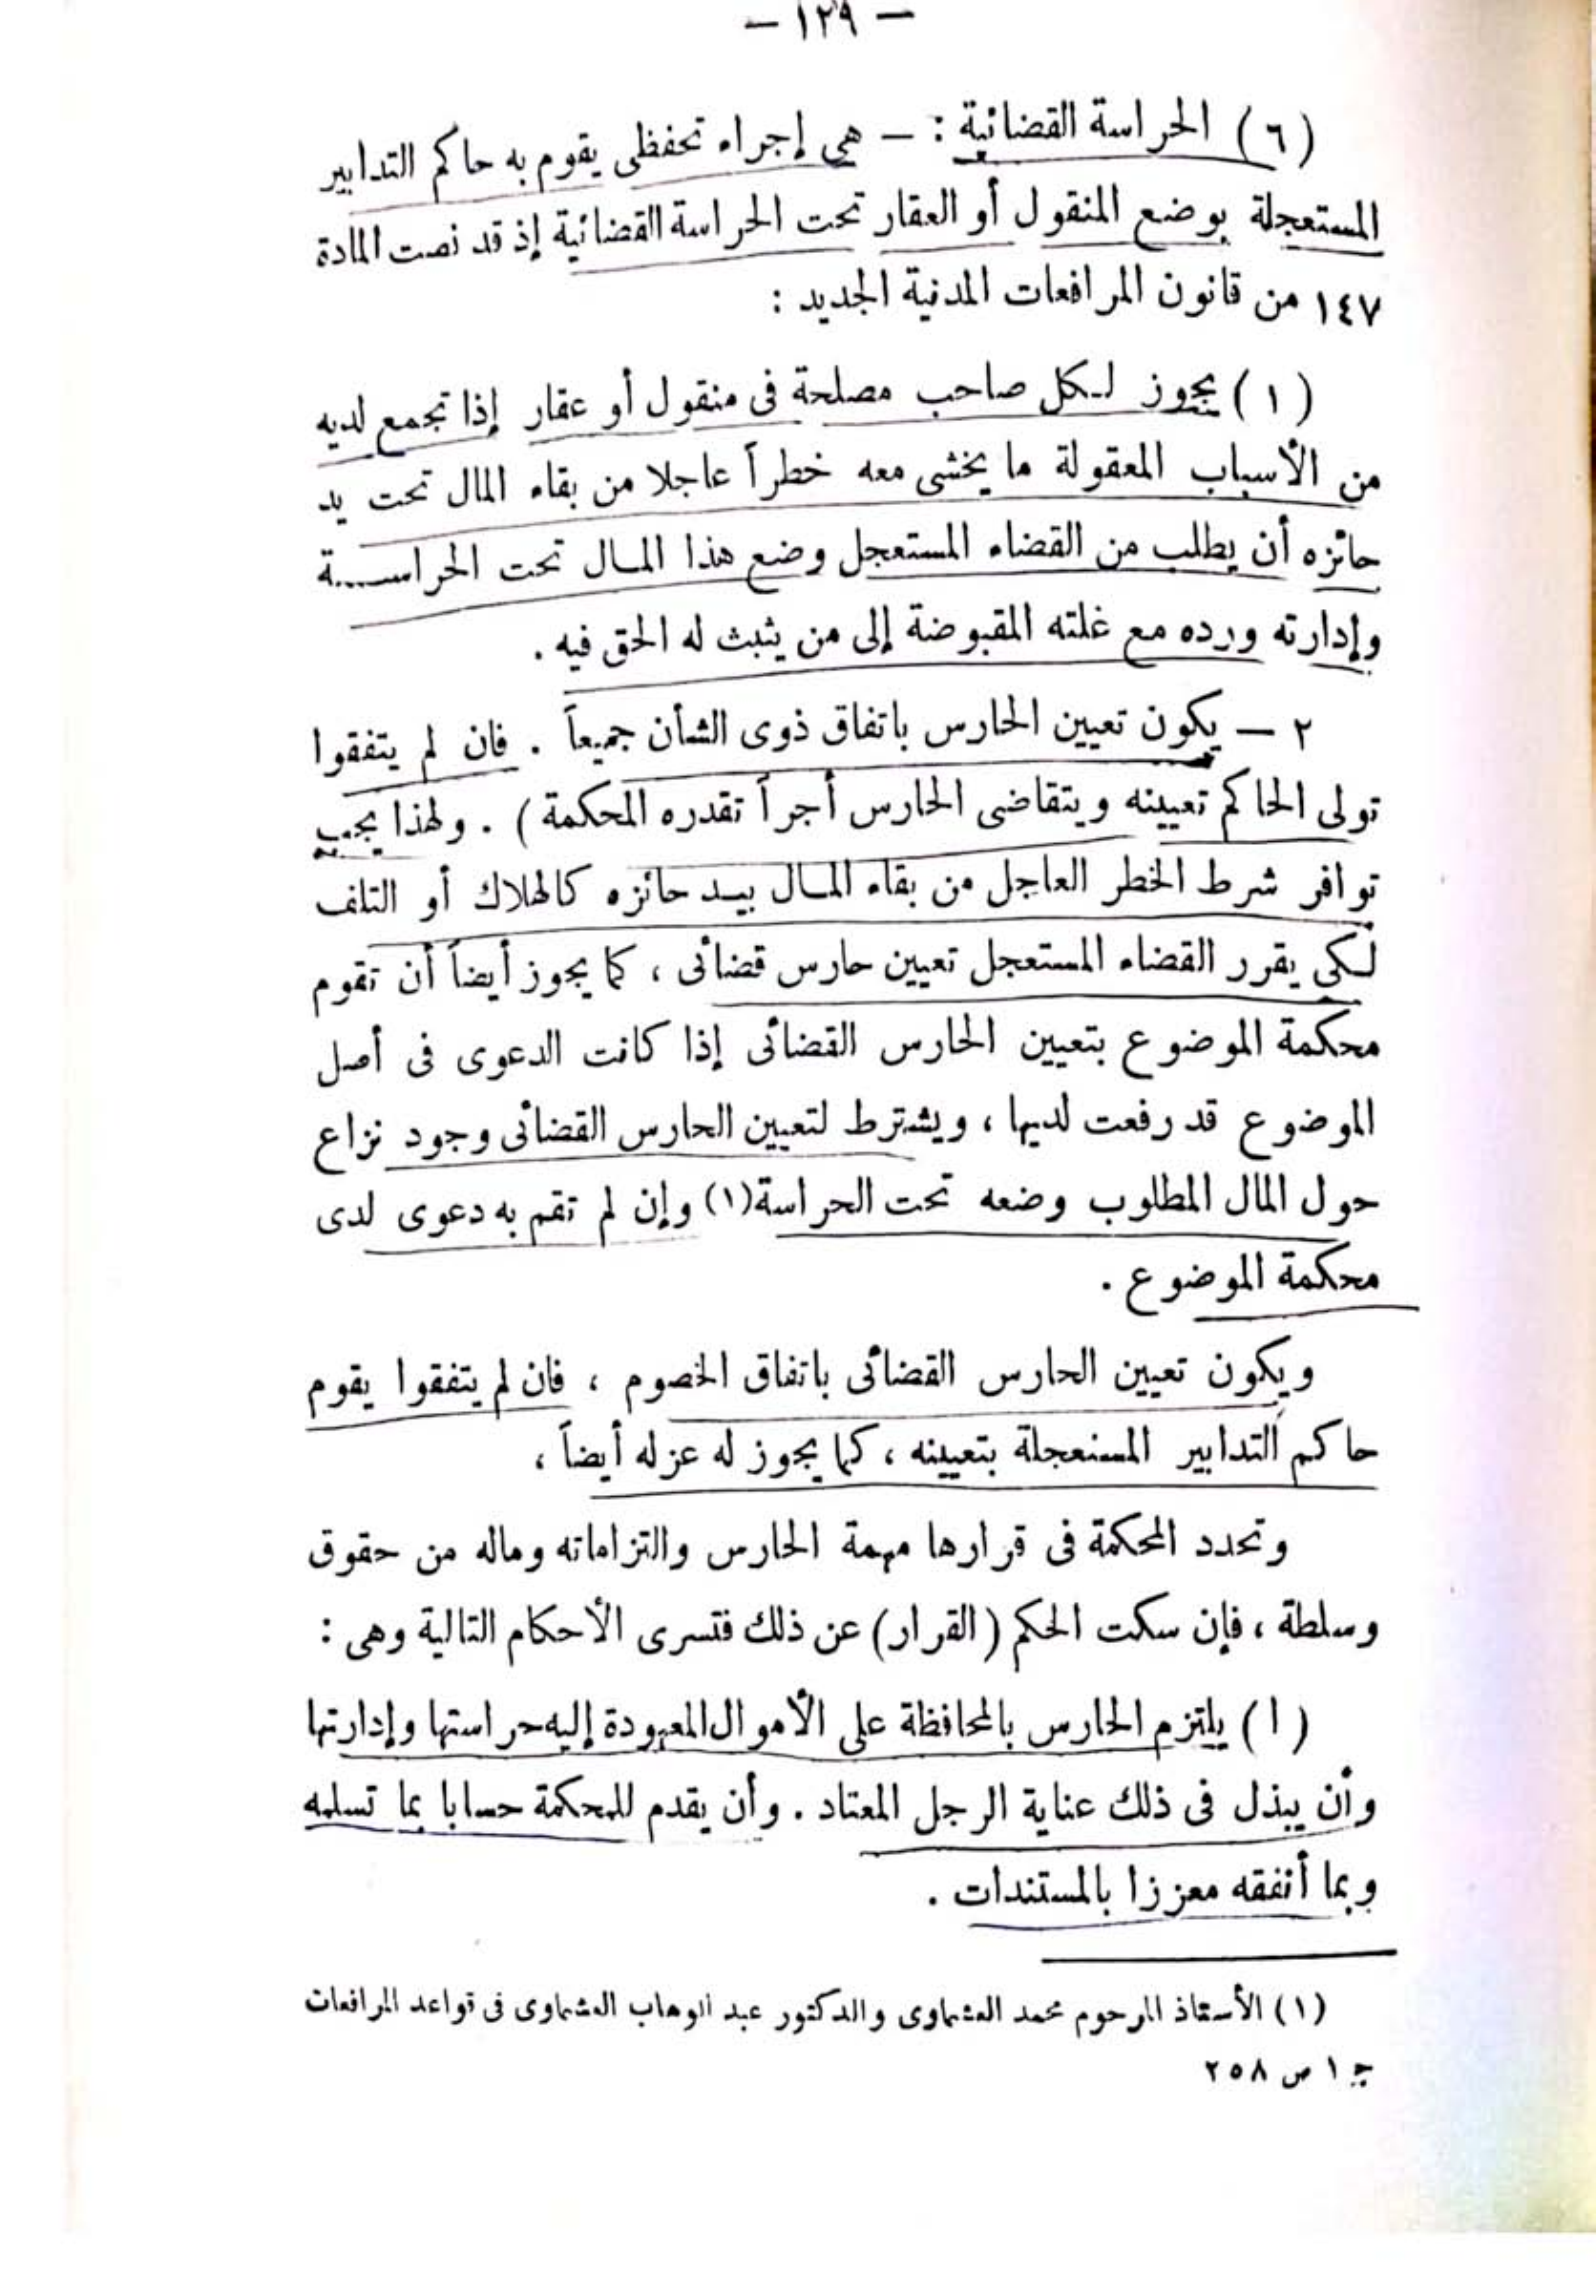 — ١٢٩ —
(٦) الحراسة القضائية : — هى إجراء تحفظى يقوم به حاكم التدابير
المستعجلة بوضع المنقول أو العقار تحت الحراسة القضائية إذ قد نصت المادة
١٤٧ من قانون المرافعات المدنية الجديد :
(١) يجوز لكل صاحب مصلحة فى منقول أو عقار إذا تجمع لديه
من الأسباب المعقولة ما يخشى معه خطراً عاجلا من بقاء المال تحت يد
حائزه أن يطلب من القضاء المستعجل وضع هذا المال تحت الحراسة
وإدارته ورده مع غلته المقبوضة إلى من يثبت له الحق فيه .
٢ — يكون تعيين الحارس باتفاق ذوى الشأن جميعاً . فان لم يتفقوا
تولى الحاكم تعيينه ويتقاضى الحارس أجراً تقدره المحكمة ) . ولهذا يجب
توافر شرط الخطر العاجل من بقاء المال بيد حائزه كالهلاك أو التلف
لكى يقرر القضاء المستعجل تعيين حارس قضائى ، كما يجوز أيضاً أن تقوم
محكمة الموضوع بتعيين الحارس القضائى إذا كانت الدعوى فى أصل
الموضوع قد رفعت لديها ، ويشترط لتعيين الحارس القضائى وجود نزاع
حول المال المطلوب وضعه تحت الحراسة(١) وإن لم تقم به دعوى لدى
محكمة الموضوع .
ويكون تعيين الحارس القضائى باتفاق الخصوم ، فان لم يتفقوا يقوم
حاكم التدابير المستعجلة بتعيينه ، كما يجوز له عزله أيضاً ،
وتحدد المحكمة فى قرارها مهمة الحارس والتزاماته وماله من حقوق
وسلطة ، فإن سكت الحكم (القرار) عن ذلك فتسرى الأحكام التالية وهى :
(ا) يلتزم الحارس بالمحافظة على الأموال المعهودة إليه حراستها وإدارتها
وأن يبذل فى ذلك عناية الرجل المعتاد . وأن يقدم للمحكمة حسابا بما تسلمه
وبما أنفقه معززا بالمستندات .
(١) الأستاذ المرحوم محمد العشماوى والدكتور عبد الوهاب العشماوى فى قواعد المرافعات
ج ١ ص ٢٥٨